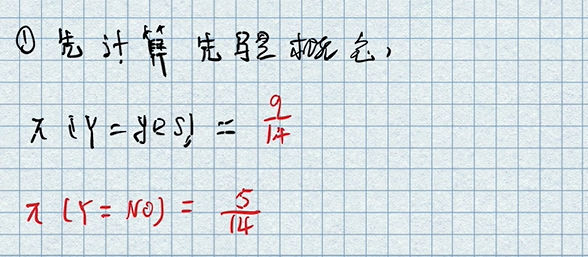 ① 先计算先验概念,
π (Y=yes) = 9/14
π (Y=NO) = 5/14